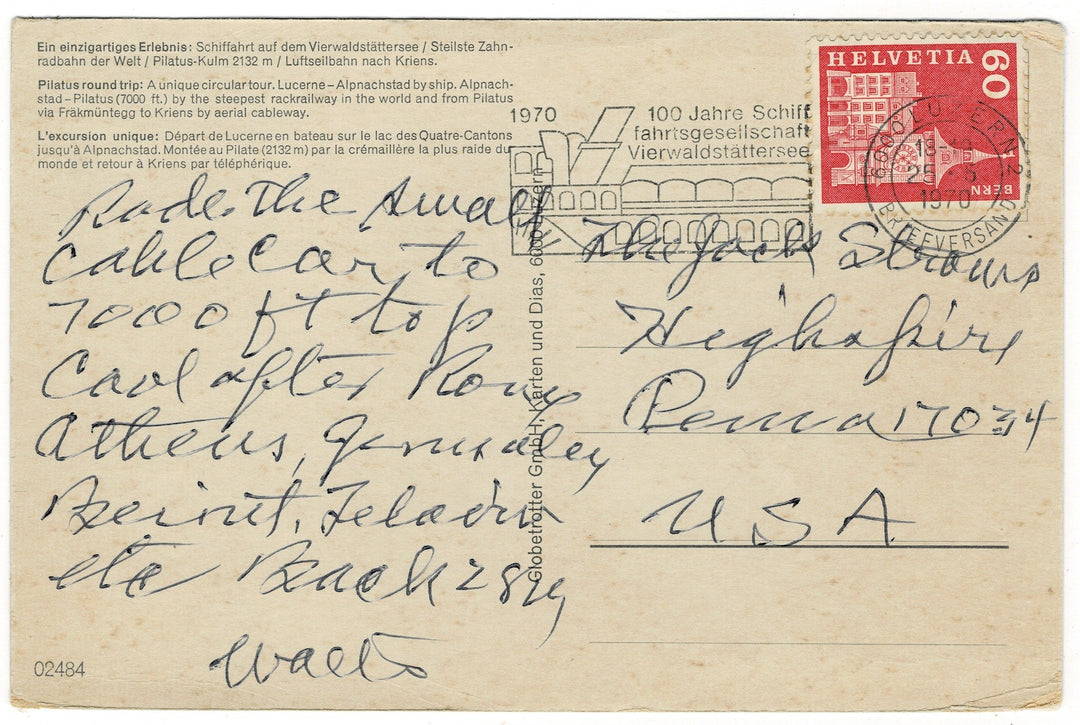 Ein einzigartiges Erlebnis: Schiffahrt auf dem Vierwaldstättersee / Steilste Zahn-
radbahn der Welt / Pilatus-Kulm 2132 m / Luftseilbahn nach Kriens.
Pilatus round trip: A unique circular tour. Lucerne – Alpnachstad by ship. Alpnach-
stad – Pilatus (7000 ft.) by the steepest rackrailway in the world and from Pilatus
via Fräkmüntegg to Kriens by aerial cableway.
L'excursion unique: Départ de Lucerne en bateau sur le lac des Quatre-Cantons
jusqu'à Alpnachstad. Montée au Pilate (2132 m) par la crémaillère la plus raide du
monde et retour à Kriens par téléphérique.
1970
100 Jahre Schiff
fahrtsgesellschaft
Vierwaldstättersee
HELVETIA
60
BERN
6000 LUZERN 2
18-
1970
BRIEFVERSAND
Rode the small
cable car to
7000 ft top
Cool after Rome
Athens,
Beirut,
etc Back 28th
Walt
The Jack Straws
Highspire
Penna 17034
USA
Globetrotter GmbH, Karten und Dias, 6000 Luzern
02484